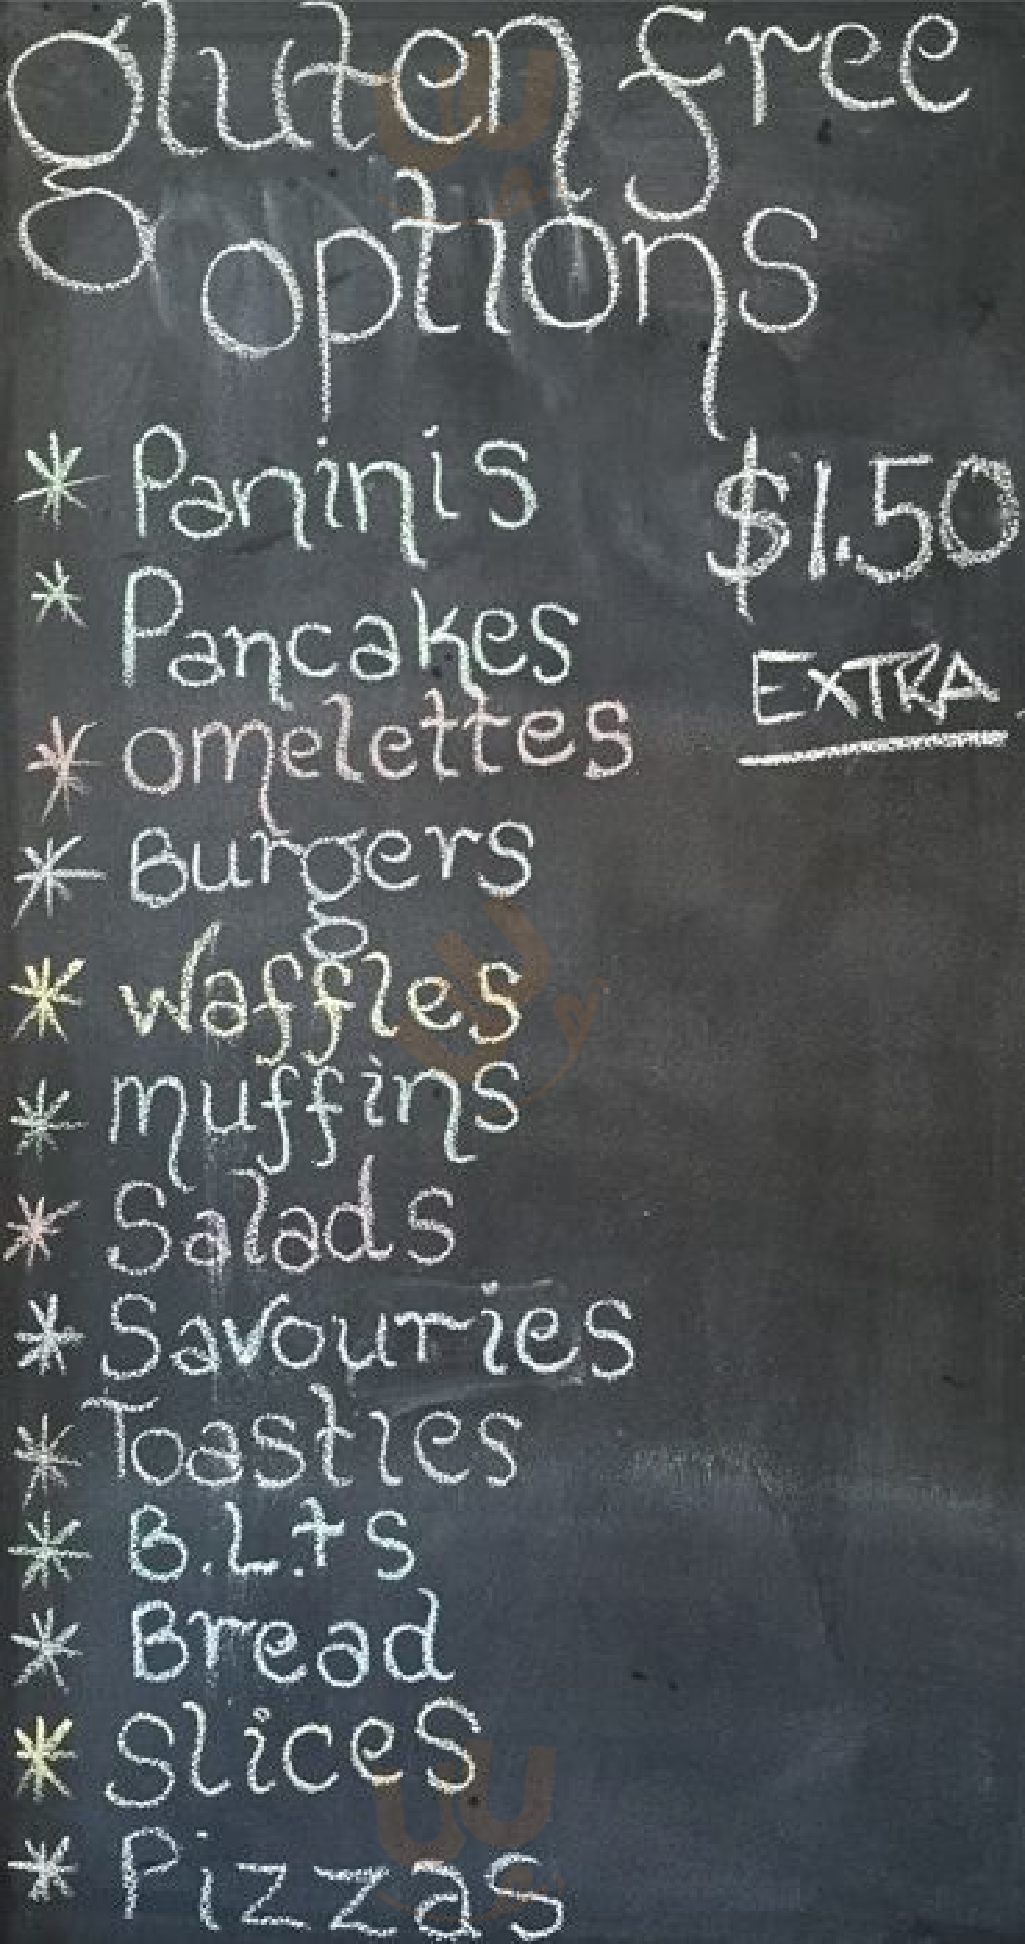 gluten free
options
* Paninis $1.50
* Pancakes EXTRA
* omelettes
* Burgers
* waffles
* muffins
* Salads
* Savouries
* Toasties
* B.L.ts
* Bread
* Slices
* Pizzas